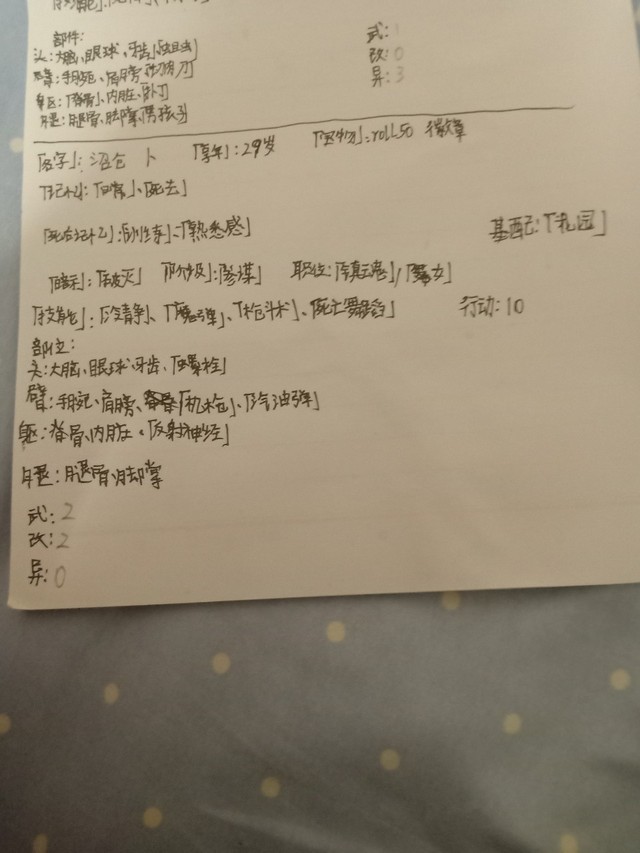 部件:
头:大脑、眼球、牙齿
式:1
臂:手腕、肩膀
改:0
异:3
躯:「脊骨」、内脏
腿:腿骨、脚掌、「男孩子」
「名字」: 卜 「享年」:29岁 「宝物」:roll50 徽章
「记忆」:「日常」、「死去」
「死后记忆」:「训练」、「熟悉感」
基配:「花园」
「暗示」:「破灭」 「阶级」:「参谋」 职位:「镇魂」/「魔女」
「技能」:「冷静」、「魔弹」、「枪斗术」、「死亡舞蹈」 行动:10
部位:
头:大脑、眼球、牙齿、「螺栓」
臂:手腕、肩膀、「机枪」、「汽油弹」
躯:脊骨、内脏、「反射神经」
腿:腿骨、脚掌
式:2
改:2
异:0